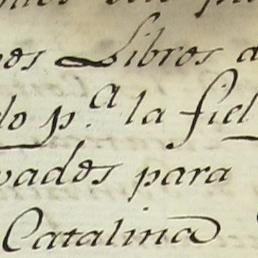 es Libros d
do p.ª la fiel
vades para
Catalina